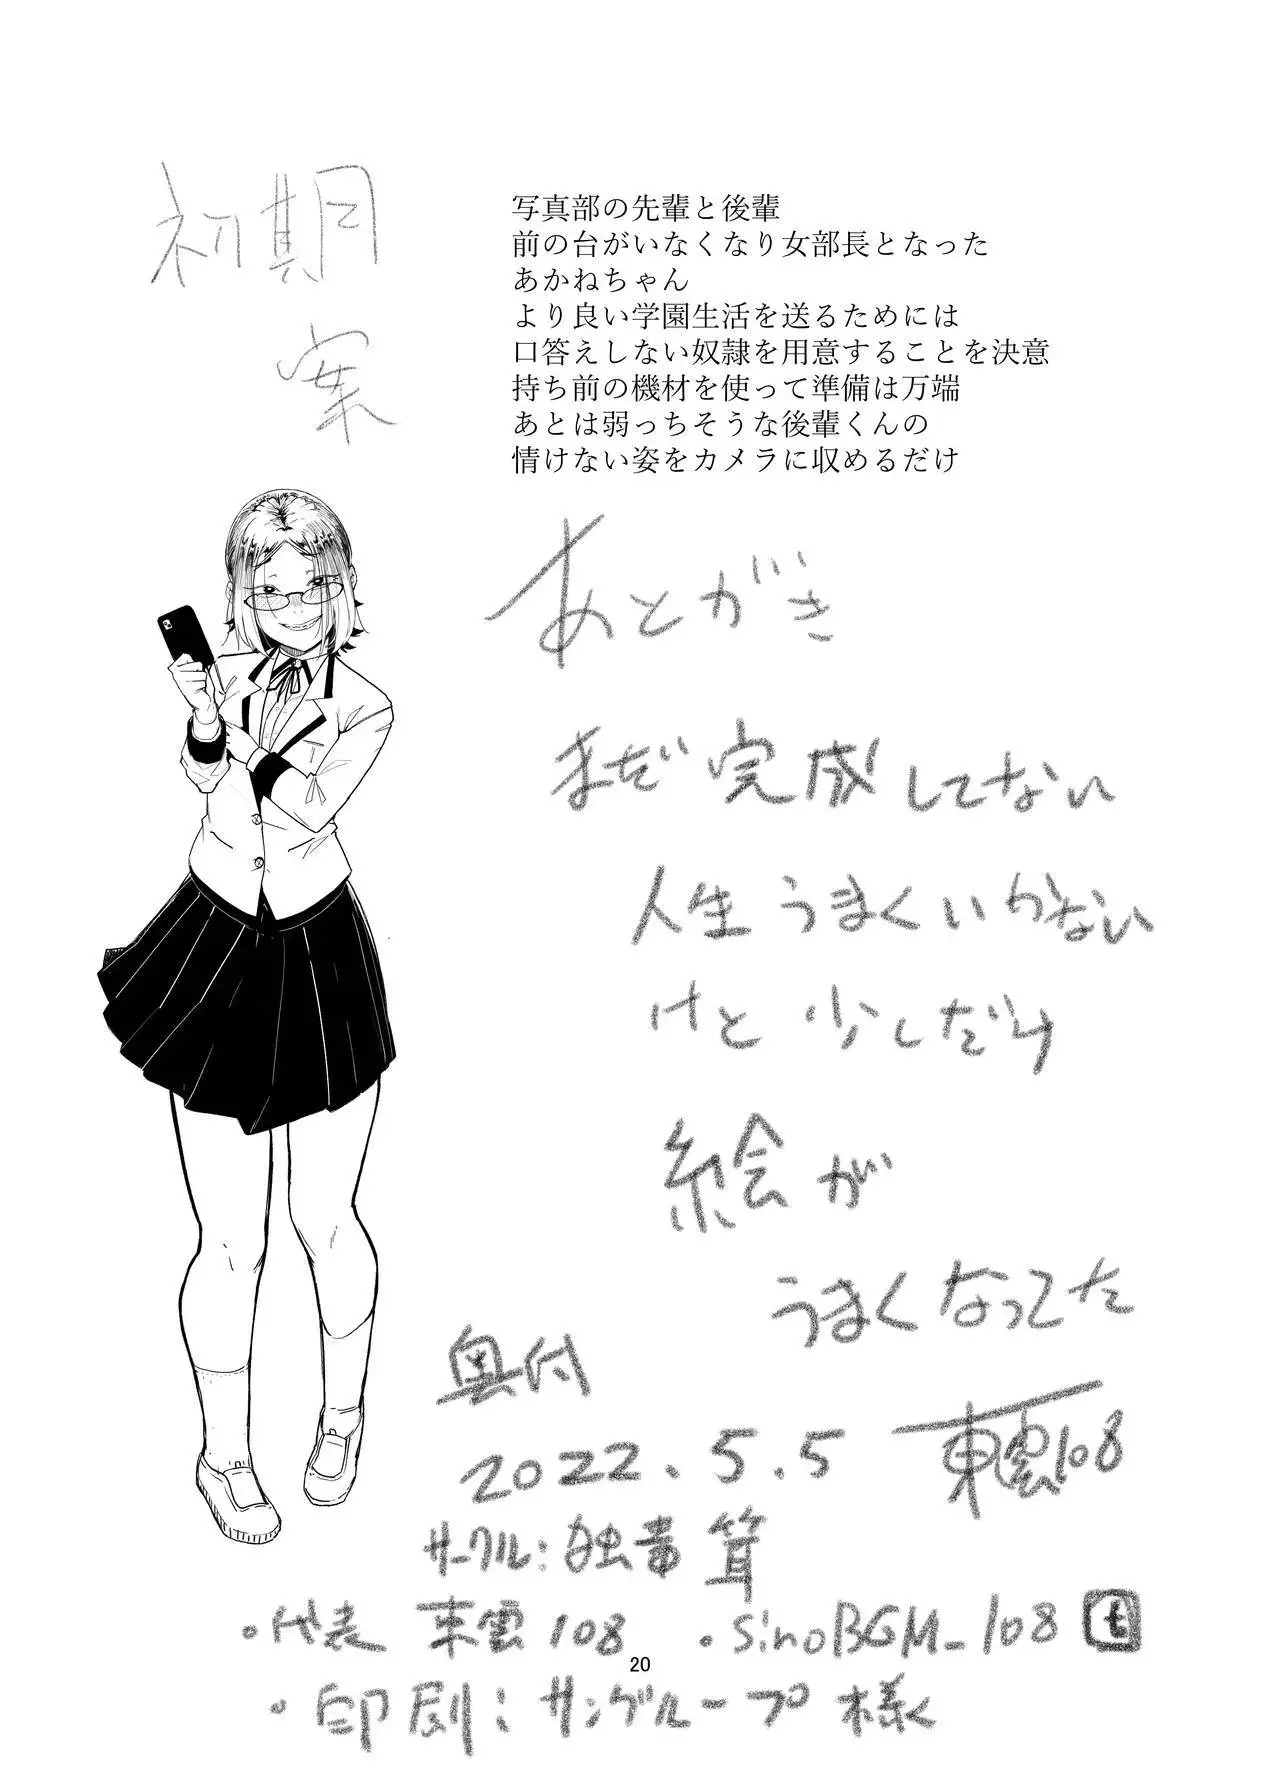 初期
案
写真部の先輩と後輩
前の台がいなくなり女部長となった
あかねちゃん
より良い学園生活を送るためには
口答えしない奴隷を用意することを決意
持ち前の機材を使って準備は万端
あとは弱っちそうな後輩くんの
情けない姿をカメラに収めるだけ
あとがき
まだ完成してない
人生うまくいかない
けど少しだけ
絵が
うまくなってた
奥付
2022.5.5 東雲108
サークル:独毒茸
・代表 東雲108 ・SinoBGM_108
20
・印刷:サングループ様